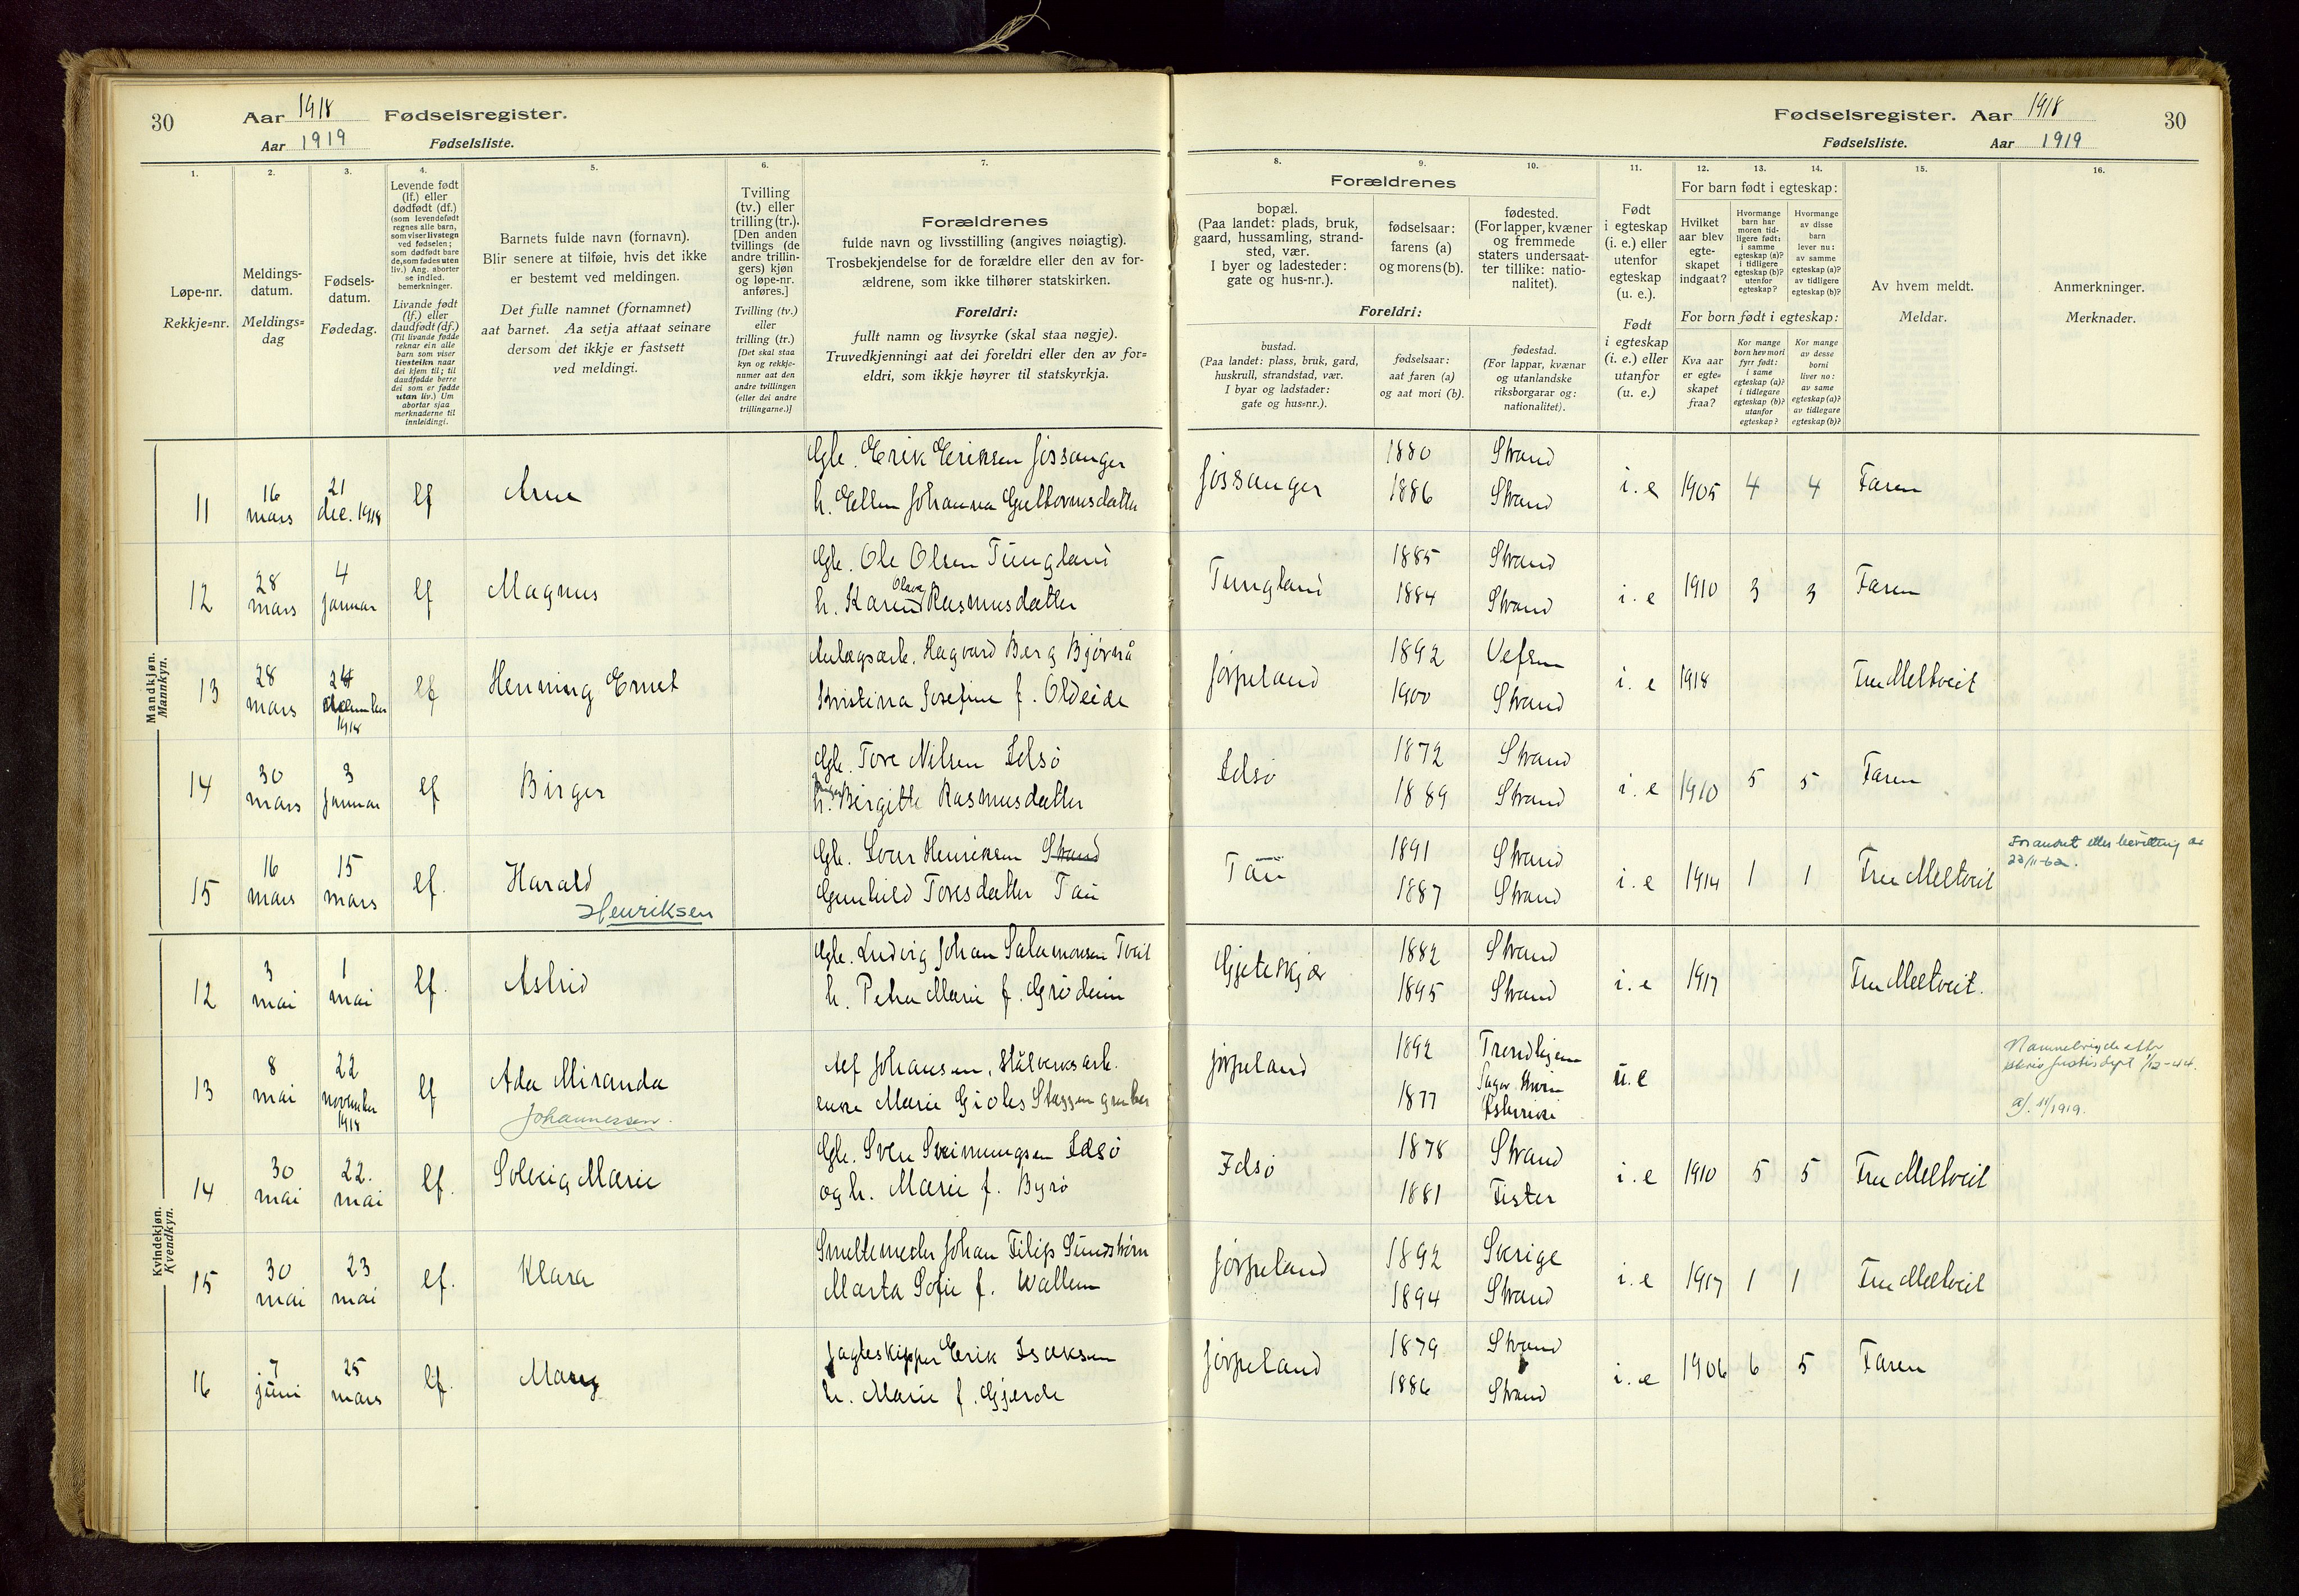 30
Aar 1918 Fødselsregister.
Aar 1919 Fødselsliste.
1.
Løpe-nr.
Rekkje=nr.
2.
Meldings-
datum.
Meldings=
dag
3.
Fødsels-
datum.
Fødedag.
4.
Levende født
(lf.) eller
dødfødt (df.)
(som levendefødt
regnes alle barn,
som viser livstegn
ved fødselen;
som dødfødt bare
de, som fødes uten
liv.) Ang. aborter
se indled.
bemerkninger.
Livande født
(lf.) eller
daudfødt (df.)
(Til livande fødde
reknar ein alle
barn som viser
livsteikn naar
dei kjem til; til
daudfødde berre
dei som er fødde
utan liv.) Um
abortar sjaa
merknaderne til
innleidingi.
5.
Barnets fulde navn (fornavn).
Blir senere at tilføie, hvis det ikke
er bestemt ved meldingen.
Det fulle namnet (fornamnet)
aat barnet. Aa setja attaat seinare
dersom det ikkje er fastsett
ved meldingi.
6.
Tvilling
(tv.) eller
trilling (tr.).
[Den anden
tvillings (de
andre trillin-
gers) kjøn
og løpe-nr.
anføres.]
Tvilling (tv.)
eller
trilling (tr.)
[Det skal staa
kyn og rekkje-
numer aat den
andre tvillingen
(eller dei andre
trillingarne.)]
7.
Forældrenes
fulde navn og livsstilling (angives nøiagtig).
Trosbekjendelse for de forældre eller den av for-
ældrene, som ikke tilhører statskirken.
Foreldri:
fullt namn og livsyrke (skal staa nøgje).
Truvedkjenningi aat dei foreldri eller den av for=
eldri, som ikkje høyrer til statskyrkja.
Mandkjøn.
Mannkyn.
11
16
mars
21
dec. 1918
lf
Arne
Gbr. Erik Eriksen Jøssanger
h. Ellen Johanna Guttormsdatter
12
28
mars
4
januar
lf
Magnus
Gbr. Ole Olsen Tungland
h. Karen Olava Rasmusdatter
13
28
mars
24
december
1918
lf
Henning Ernst
Anlægsarb. Hagvard Berg Bjørnå
Kristina Josefine f. Oldeide
14
30
mars
3
januar
lf
Birger
Gbr. Tore Nilsen Idsø
h. Birgitte Rasmusdatter
15
16
mars
15
mars
lf.
Harald
Henriksen
Gbr. Sven Henriksen Strand
Gunhild Toresdatter Tau
Kvindekjøn.
Kvendkyn.
12
3
mai
1
mai
lf.
Astrid
Gbr. Ludvig Johan Salamonsen Tveit
h. Petra Marie f. Grødeim
13
8
mai
22
november
1918
lf
Ada Miranda
Johannessen.
Alf Johansen, Stålverksarb.
enke Marie Gioles Staggengruber
14
30
mai
22.
mai
lf.
Solveig Marie
Gbr. Sven Sveinungsen Idsø
og h. Marie f. Byrø
15
30
mai
23
mai
lf.
Klara
Smeltemester Johan Filip Sundstrøm
Marta Sofie f. Wallem
16
7
juni
25
mars
lf.
Mary
Jagteskipper Erik Isaksen
h. Marie f. Gjerde
Fødselsregister. Aar 1918
30
Fødselsliste. Aar 1919
8.
Forældrenes
bopæl.
(Paa landet: plads, bruk,
gaard, hussamling, strand-
sted, vær.
I byer og ladesteder:
gate og hus-nr.).
Foreldri:
bustad.
(Paa landet: plass, bruk, gard,
huskrull, strandstad, vær.
I byar og ladstader:
gate og hus=nr.).
9.
fødselsaar:
farens (a)
og morens (b).
fødselsaar:
aat faren (a)
og aat mori (b).
10.
fødested.
(For lapper, kvæner
og fremmede
staters undersaat-
ter tillike: natio-
nalitet).
fødestad.
(For lappar, kvænar
og utanlandske
riksborgarar og:
nationalitet).
11.
Født
i egteskap
(i. e.) eller
utenfor
egteskap
(u. e.).
Født
i egteskap
(i. e.) eller
utanfor
(u. e.)
12.
For barn født i egteskap:
Hvilket
aar blev
egte-
skapet
indgaat?
For born født i egteskap:
Kva aar
er egte=
skapet
fraa?
13.
Hvormange
barn har
moren tid-
ligere født:
i samme
egteskap (a)?
i tidligere
egteskap (b)?
utenfor
egteskap?
Kor mange
born hev mori
fyrr født:
i same
egteskap (a)?
i tidlegare
egteskap (b)?
utanfor
egteskap?
14.
Hvormange
av disse
barn
lever nu:
av samme
egteskap (a)?
av tidligere
egteskap (b)?
Kor mange
av desse
borni
liver no:
av same
egteskap (a)?
av tidlegare
egteskap (b)?
15.
Av hvem meldt.
Meldar.
16.
Anmerkninger.
Merknader.
Jøssanger
1880
1886
Strand
Strand
i. e
1905
4
4
Faren
Tungland
1885
1884
Strand
Strand
i. e
1910
3
3
Faren
Jørpeland
1892
1900
Vefsen
Strand
i. e
1918
Fru Meltveit
Idsø
1872
1889
Strand
Strand
i. e
1910
5
5
Faren
Tau
1891
1887
Strand
Strand
i. e
1914
1
1
Fru Meltveit
Forandret etter bevilling av
22/11-62.
Gjeteskjær
1882
1895
Strand
Strand
i. e
1917
Fru Meltveit.
Jørpeland
1892
1877
Trondhjem
Østerrike
u. e
Navnebrig de etter
skriv Justisdept 1/12-44.
a/. 11/1919.
Idsø
1878
1881
Strand
Fister
i. e
1910
5
5
Fru Meltveit
Jørpeland
1892
1894
Sverige
Strand
i. e
1917
1
1
Fru Meltveit
Jørpeland
1879
1886
Strand
Strand
i. e
1906
6
5
Faren